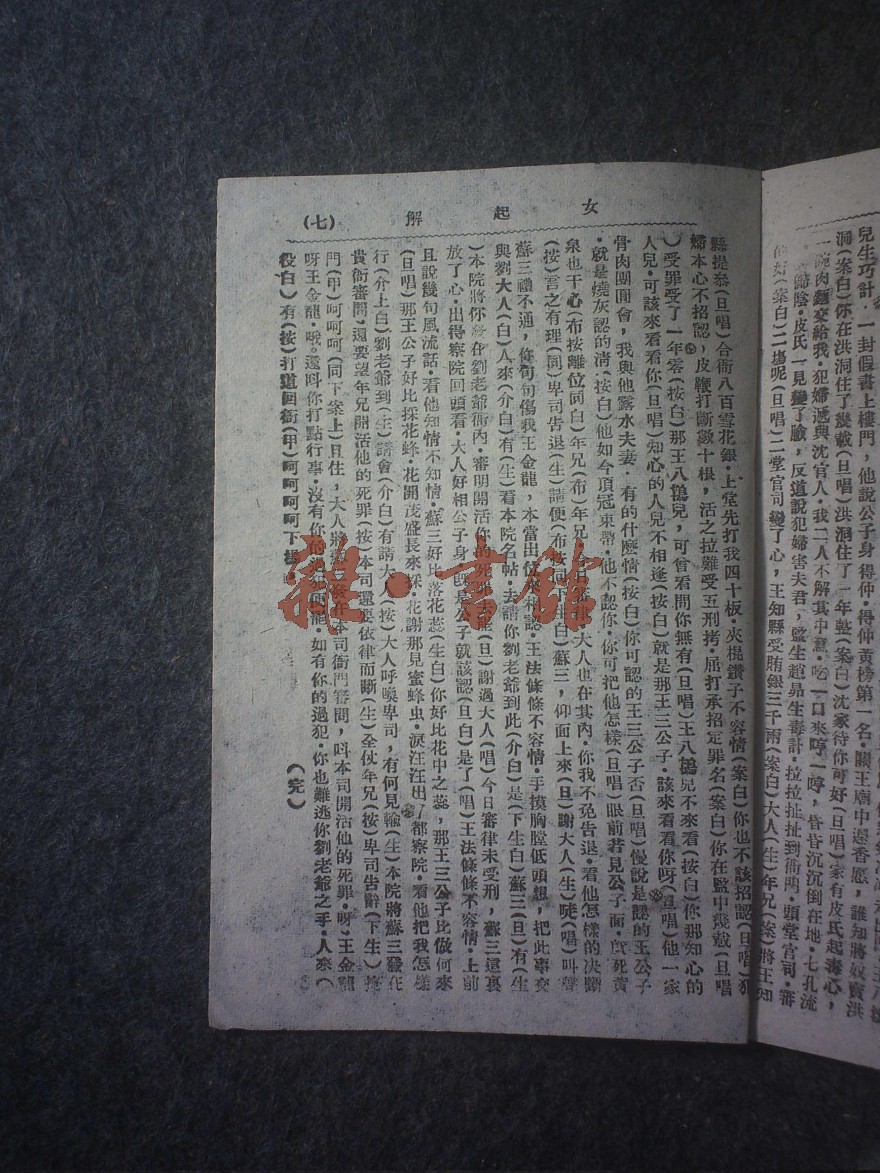 兒生巧計·一封假書上樓門，他說公子身得仲·得仲黃榜第一名·關王廟中還香愿，誰知將奴賣洪
洞(案白)你在洪洞住了幾載(旦唱)洪洞住了一年整(案白)沈家待你可好(旦唱)家有皮氏起毒心，
一碗肉麵交給我·犯婦遞與沈官人·我二人不解其中意·吃一口來哼一哼，昏昏沉沉倒在地·七孔流
歸陰·皮氏一見變了臉，反道說犯婦害夫君，監生趙昴生毒計·拉拉扯扯到衙門·頭堂官司·審
的好(案白)二塲呢(旦唱)二堂官司變了心，王知縣受賄銀三千兩(案白)大人(生)年兄(案)將王知
女起解
(七)
縣提叅(旦唱)合衙八百雪花銀·上堂先打我四十板·夾棍鑽子不容情(案白)你也不該招認(旦唱)犯
婦本心不招認，皮鞭打斷數十根，活之拉難受五刑拷·屈打承招定罪名(案白)你在監中幾載(旦唱
)受罪受了一年零(按白)那王八鴇兒，可曾看問你無有(旦唱)王八鴇兒不來看(按白)你那知心的
人兒·可該來看看你(旦唱)知心的人兒不相逢(按白)就是那王三公子·該來看看你呀(旦唱)他一家
骨肉團圓會，我與他露水夫妻·有的什麼情(按白)你可認的王三公子否(旦唱)慢說是認的王公子
·就是燒灰認的淸(按白)他如今頂冠束帶·他不認你·你可把他怎樣(旦唱)眼前若見公子面·
死黃
泉也干心(布按離位同白)年兄(布)年兄
大人也在其內·你我不免告退·看他怎樣的決斷
(按)言之有理(同)卑司告退(生)請便(布按同下生白)蘇三，仰面上來(旦)謝大人(生)唗(唱)叫聲
蘇三禮不通，你句句傷我王金龍，本當出位
相認·王法條條不容情·手摸胸膛低頭想，把此事交
與劉大人(白)人來(介白)有(生)看本院名帖·去請你劉老爺到此(介白)是(下生白)蘇三(旦)有(生
)本院將你發在劉老爺衙內·審明開活你的死罪去罷(旦)謝過大人(唱)今日審律未受刑，蘇三這裏
放了心·出得察院回頭看·大人好相公子身·旣是公子就該認(旦白)是了(唱)王法條條不容情·上前
且說幾句風流話·看他知情不知情·蘇三好比落花蕊(生白)你好比花中之蕊，那王三公子比做何來
(旦唱)那王公子好比採花蜂·花開茂盛長來採·花謝那見蜜蜂虫·淚汪汪出了都察院·看他把我怎樣
行(介上白)劉老爺到(生)請會(介白)有請大人(按)大人呼喚卑司，有何見諭(生)本院將蘇三發在
貴衙審問·還要望年兄開活他的死罪(按)本司還要依律而斷(生)全仗年兄(按)卑司告辭(下生)掩
門(甲)呵呵呵(同下案上)且住，大人將蘇三發在本司衙門審問，呌本司開活他的死罪·呀，王金龍
呀王金龍·哦。還呌你打點行事·沒有你的過犯便罷·如有你的過犯·你也難逃你劉老爺之手·人來(
役白)有(按)打道回衙(甲)呵呵呵呵下場·
(完)
雜·書館